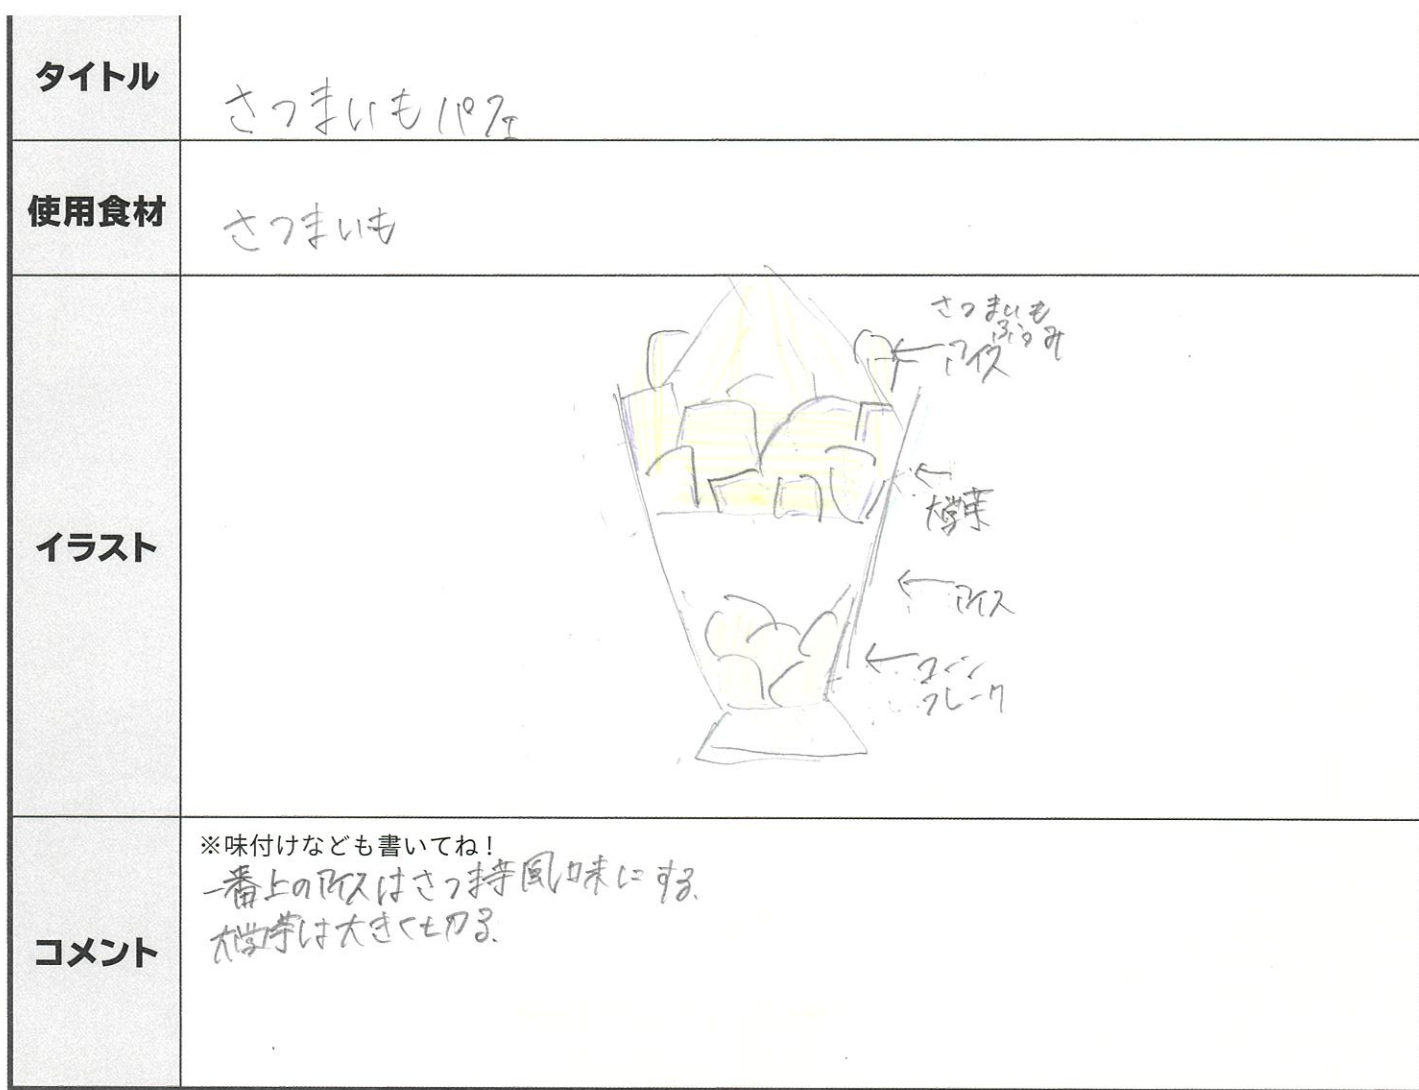 タイトル
さつまいもパフェ
使用食材
さつまいも
イラスト
さつまいも
ふうみ
アイス
大学芋
アイス
コーン
フレーク
コメント
※味付けなども書いてね！
一番上のアイスはさつま芋風味にする。
大学芋は大きく切る。